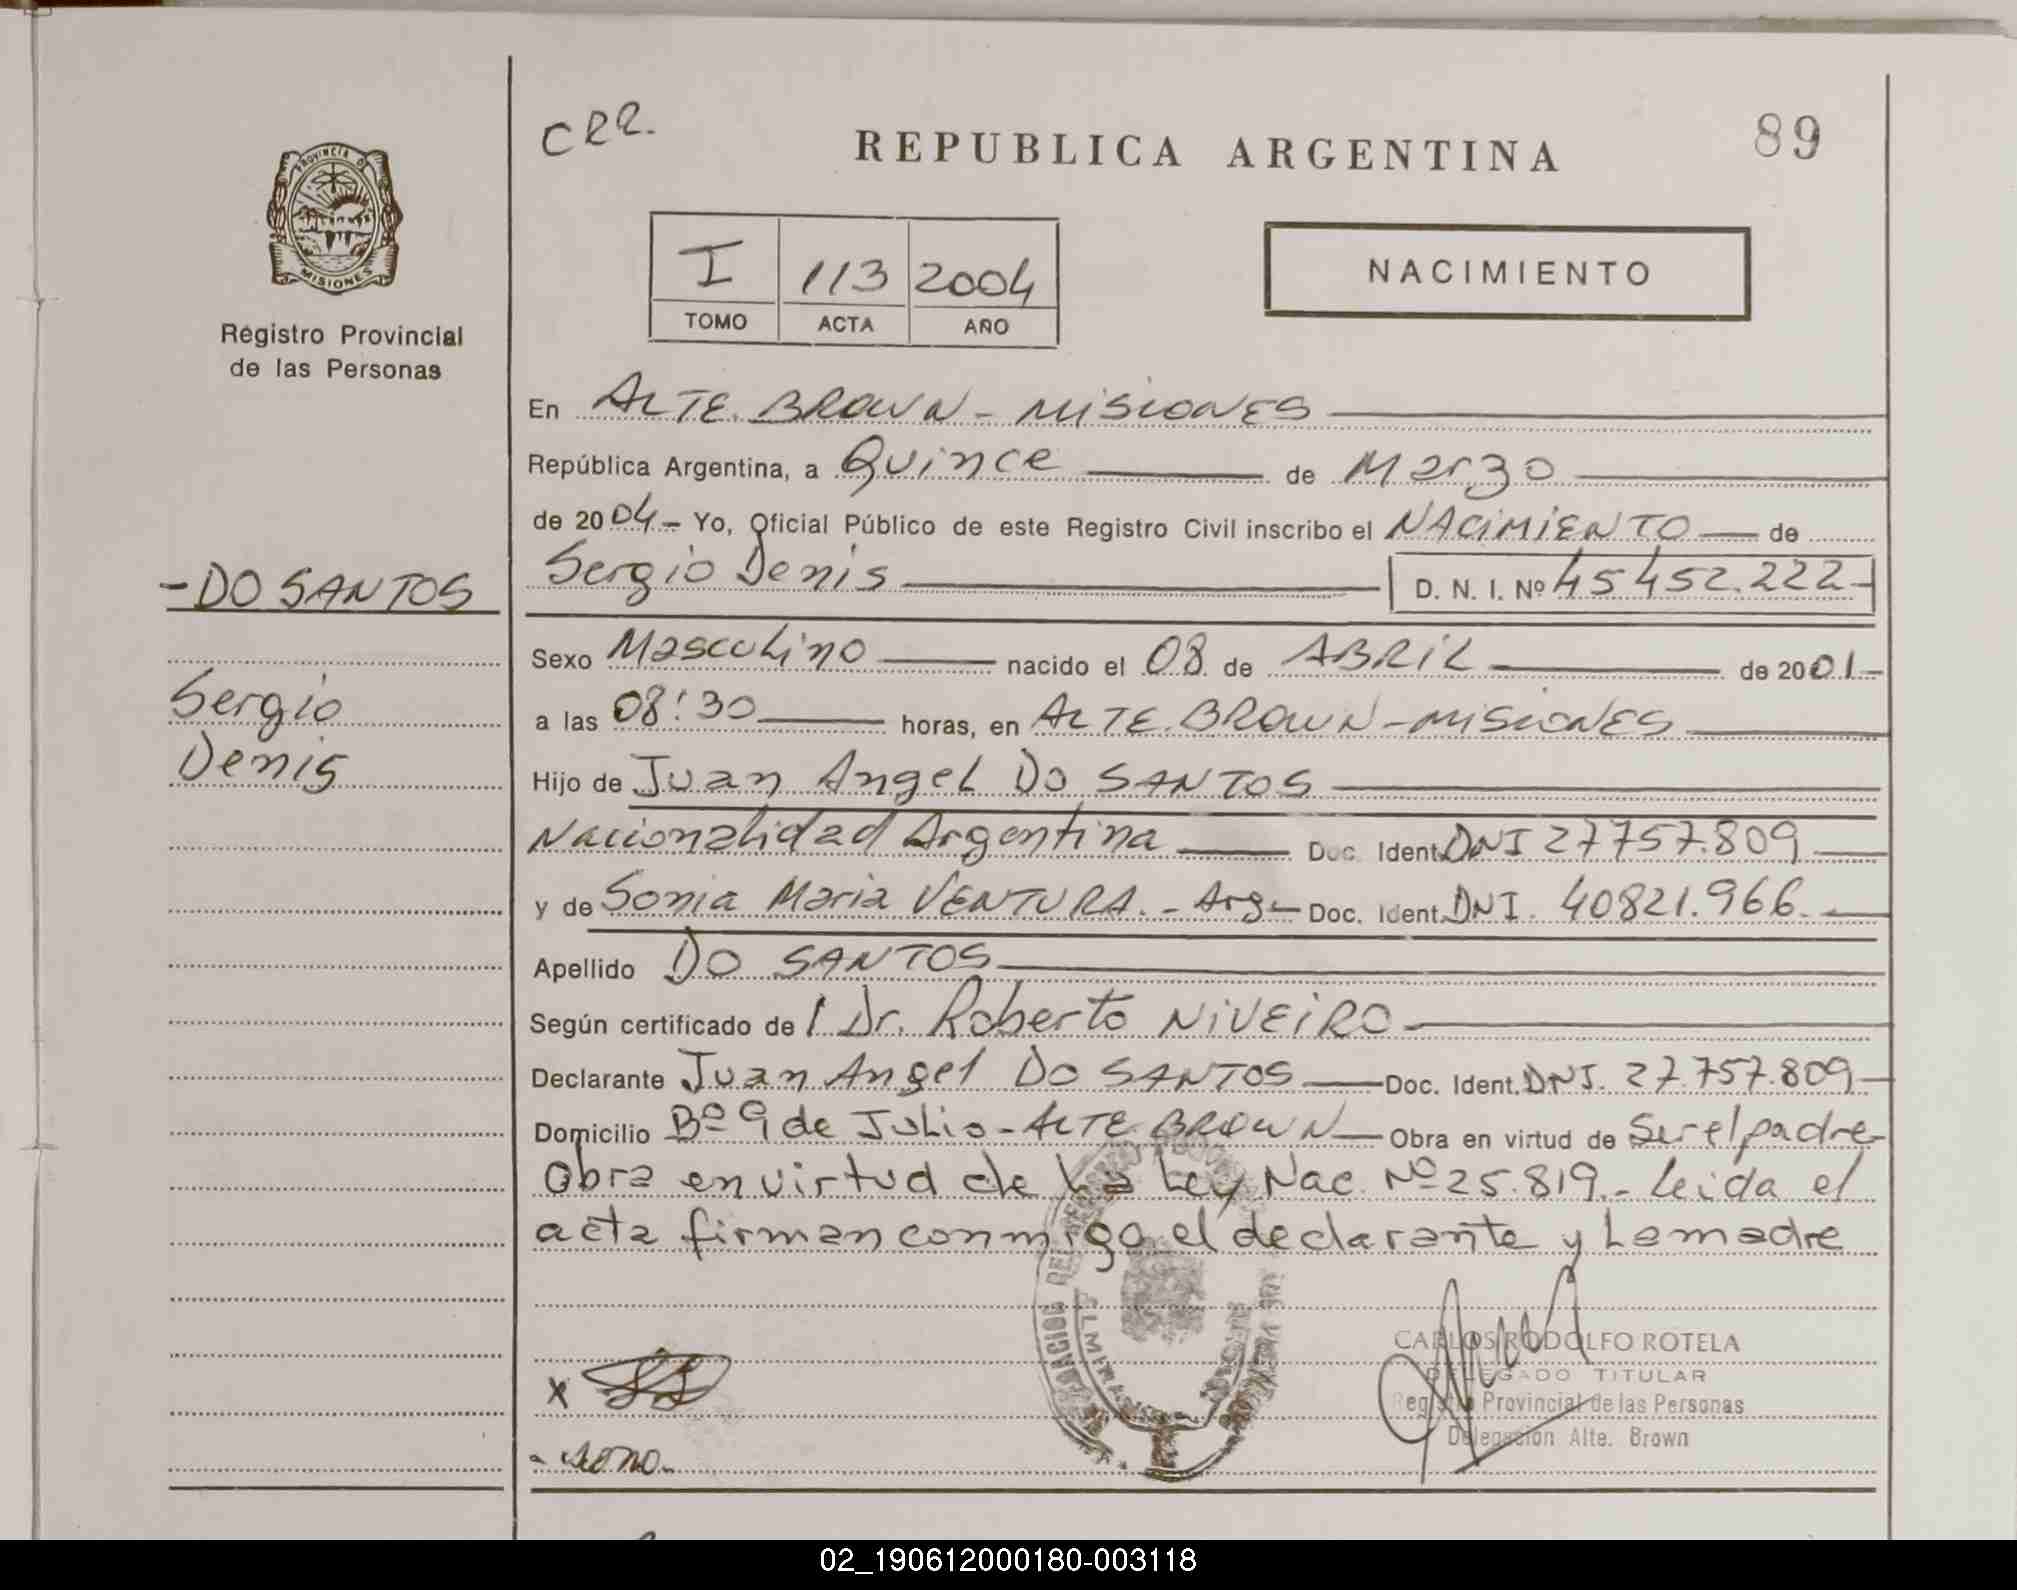 CRR.
REPUBLICA ARGENTINA
89
PROVINCIA D
MISIONES
Registro Provincial
de las Personas
I 113 2004
TOMO ACTA AÑO
NACIMIENTO
En ALTE. BROWN - MISIONES
República Argentina, a Quince de Marzo
de 2004 - Yo, Oficial Público de este Registro Civil inscribo el NACIMIENTO de
Sergio Denis D. N. I. Nº 45452.222-
- DO SANTOS
Sergio
Denis
Sexo Masculino nacido el 08 de ABRIL de 2001-
a las 08:30 horas, en ALTE. BROWN - MISIONES
Hijo de Juan Angel DO SANTOS
Nacionalidad Argentina Doc. Ident. DNI 27757.809
y de Sonia Maria VENTURA. - Arg- Doc. Ident. DNI. 40821.966.-
Apellido DO SANTOS
Según certificado de Dr. Roberto NIVEIRO
Declarante Juan Angel DO SANTOS Doc. Ident. DNI. 27.757.809
Domicilio Bº 9 de Julio - ALTE. BROWN Obra en virtud de Ser el padre
Obra en virtud de la Ley Nac. Nº 25.819.- leida el
acta firman conmigo el declarante y La madre
CARLOS RODOLFO ROTELA
DELEGADO TITULAR
Registro Provincial de las Personas
Delegación Alte. Brown
X
02_190612000180-003118